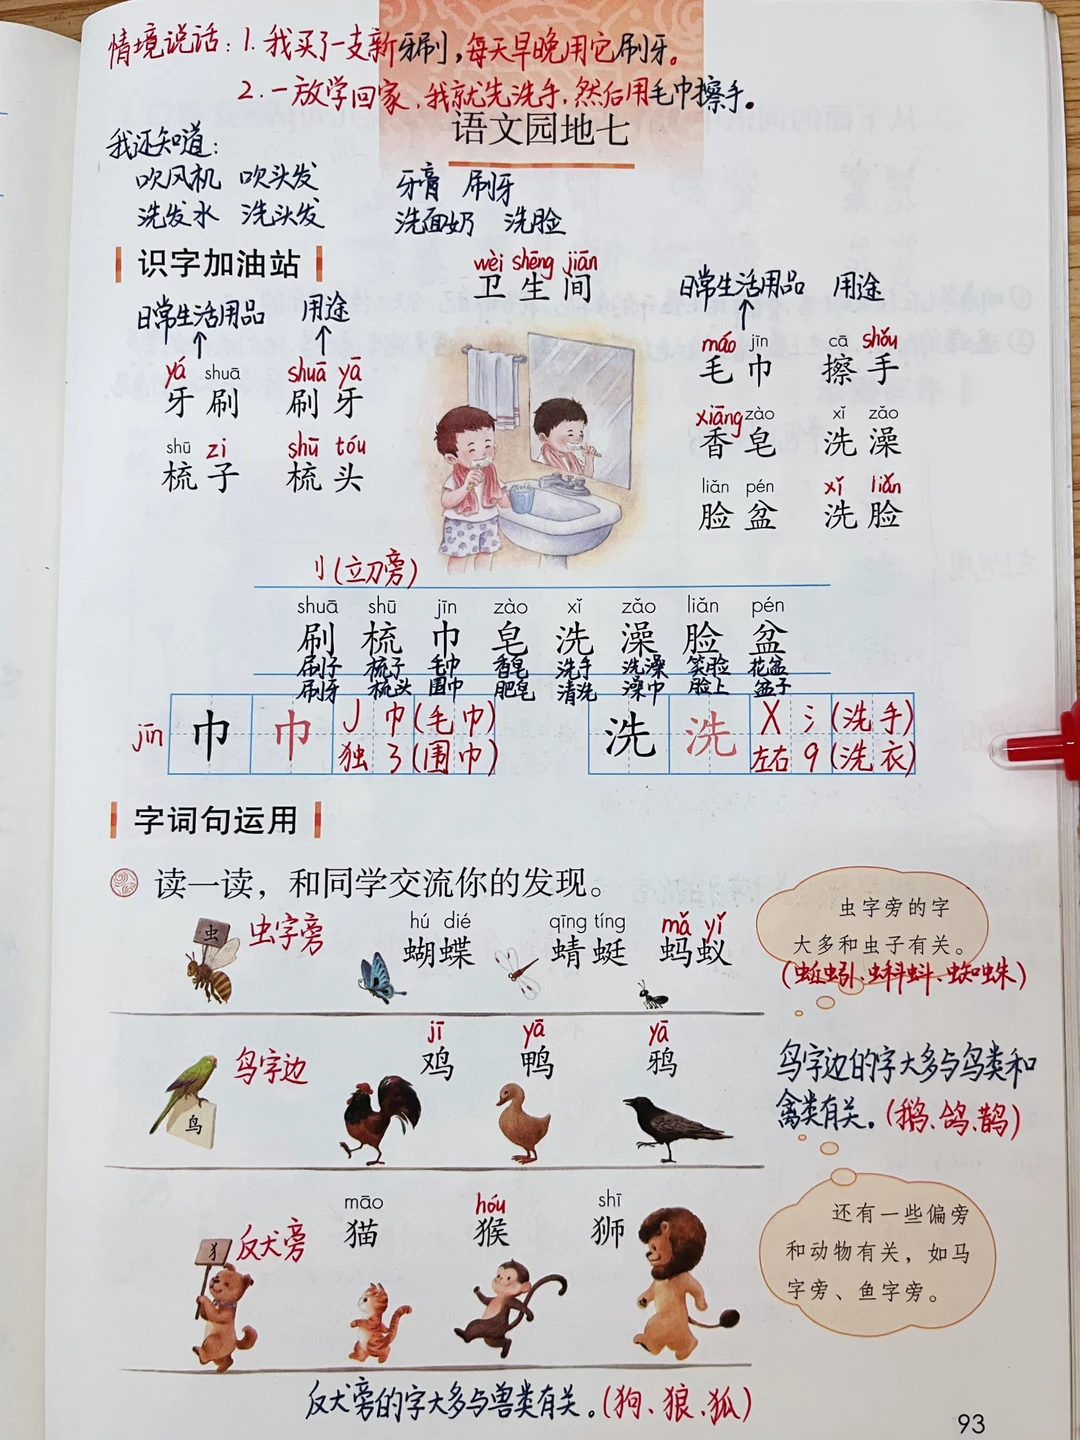 情境说话：1.我买了一支新牙刷，每天早晚用它刷牙。
2.一放学回家，我就先洗手，然后用毛巾擦手。
语文园地七
我还知道：
吹风机 吹头发 牙膏 刷牙
洗发水 洗头发 洗面奶 洗脸
识字加油站
wèi shēng jiān
卫生间
日常生活用品 用途
yá shuā shuā yā
牙刷 刷牙
shū zi shū tóu
梳子 梳头
日常生活用品 用途
máo jīn cā shǒu
毛巾 擦手
xiāng zào xǐ zǎo
香皂 洗澡
liǎn pén xǐ liǎn
脸盆 洗脸
刂(立刀旁)
shuā shū jīn zào xǐ zǎo liǎn pén
刷 梳 巾 皂 洗 澡 脸 盆
刷子 梳子 毛巾 香皂 洗手 洗澡 笑脸 花盆
刷牙 梳头 围巾 肥皂 清洗 澡巾 脸上 盆子
jīn 巾 巾 J 巾(毛巾) 洗 洗 X 氵(洗手)
独 3(围巾) 左右 9(洗衣)
字词句运用
读一读，和同学交流你的发现。
hú dié qīng tíng mǎ yǐ
虫 虫字旁 蝴蝶 蜻蜓 蚂蚁
虫字旁的字
大多和虫子有关。
(蚯蚓、蝌蚪、蜘蛛)
jī yā yā
鸟 鸟字边 鸡 鸭 鸦
鸟字边的字大多与鸟类和
禽类有关。(鹅、鸽、鹊)
māo hóu shī
犭 反犬旁 猫 猴 狮
还有一些偏旁
和动物有关，如马
字旁、鱼字旁。
反犬旁的字大多与兽类有关。(狗、狼、狐)
93